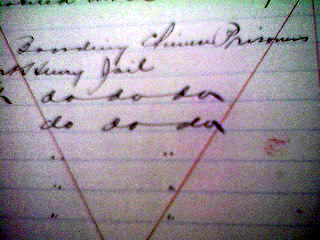 Boarding Chinese Prisoners
Henry Jail
do do do
do do do
" "
" "
" "